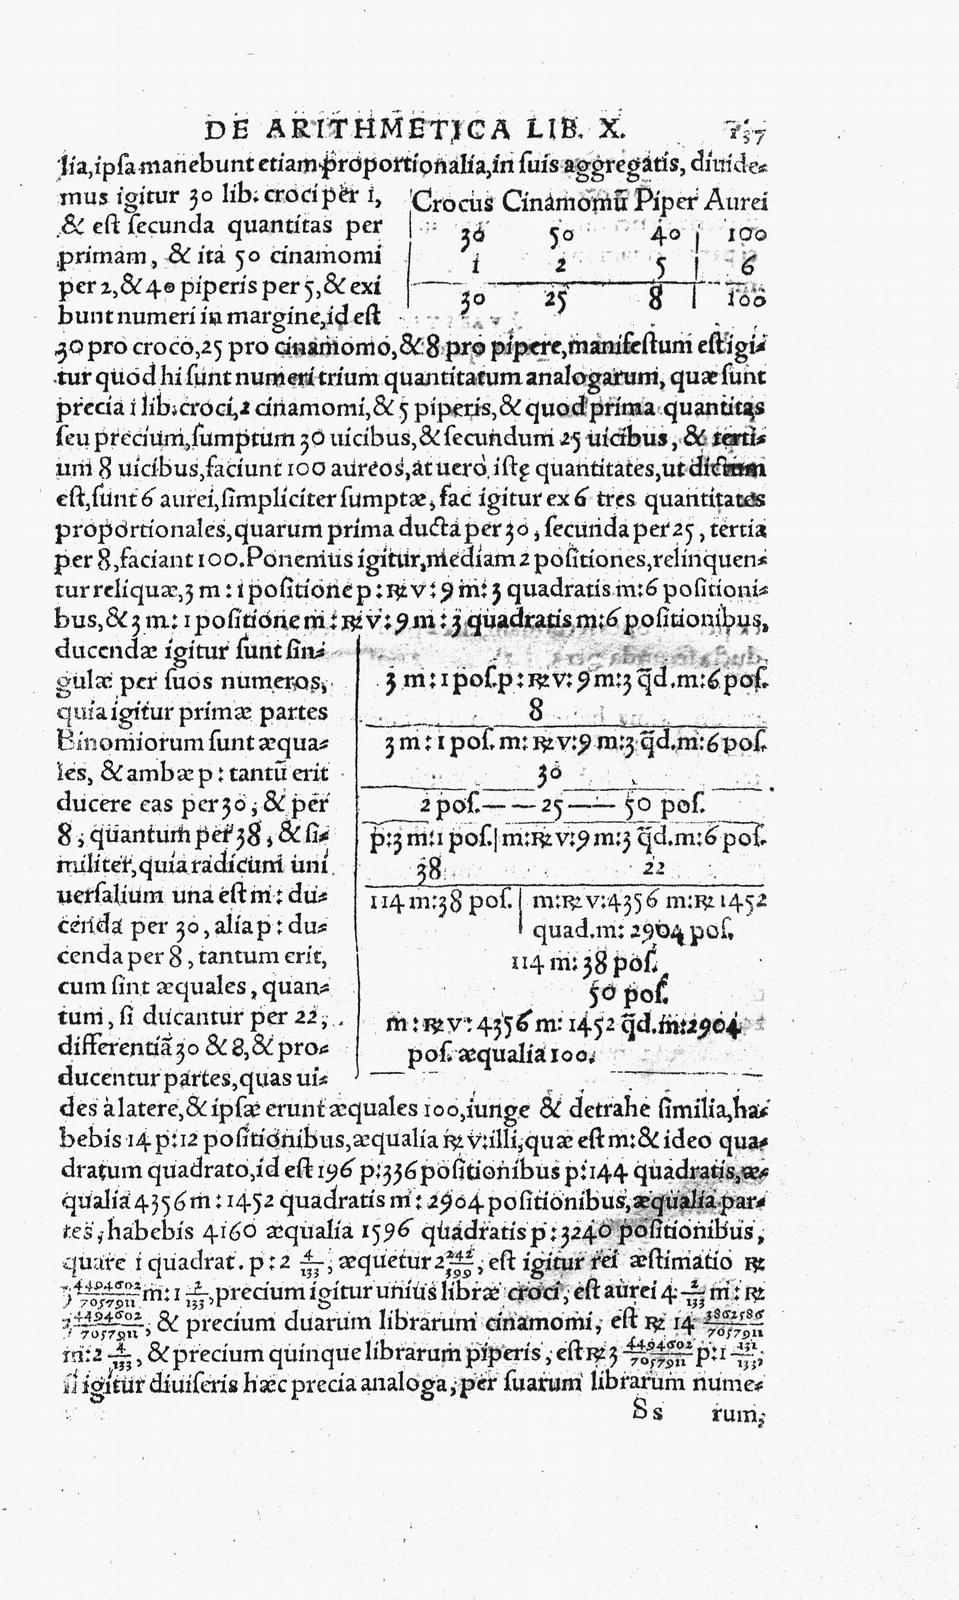 DE ARITHMETICA LIB. X. 137
lia, ipsa manebunt etiam proportionalia, in suis aggregatis, diuide-
mus igitur 30 lib. croci per 1,
& est secunda quantitas per
primam, & ita 50 cinamomi
per 2, & 40 piperis per 5, & exi
bunt numeri in margine, id est
Crocus Cinamomũ Piper Aurei
30 50 40 | 100
1 2 5 | 6
30 25 8 | 100
30 pro croco, 25 pro cinamomo, & 8 pro pipere, manifestum est igi-
tur quod hi sunt numeri trium quantitatum analogarum, quæ sunt
precia 1 lib. croci, 2 cinamomi, & 5 piperis, & quod prima quantitas
seu precium, sumptum 30 uicibus, & secundum 25 uicibus, & terti-
um 8 uicibus, faciunt 100 aureos, at uero istę quantitates, ut dictum
est, sunt 6 aurei, simpliciter sumptæ, fac igitur ex 6 tres quantitates
proportionales, quarum prima ducta per 30, secunda per 25, tertia
per 8, faciant 100. Ponemus igitur, mediam 2 positiones, relinquen-
tur reliquæ, 3 m: 1 positione p: ℞ v: 9 m: 3 quadratis m: 6 positioni-
bus, & 3 m: 1 positione m: ℞ v: 9 m: 3 quadratis m: 6 positionibus,
ducendæ igitur sunt sin-
gulæ per suos numeros,
quia igitur primæ partes
Binomiorum sunt æqua-
les, & ambæ p: tantũ erit
ducere eas per 30, & per
8, quantum per 38, & si-
militer, quia radicum uni
uersalium una est m: du-
cenda per 30, alia p: du-
cenda per 8, tantum erit,
cum sint æquales, quan-
tum, si ducantur per 22,
differentiã 30 & 8, & pro-
ducentur partes, quas ui-
3 m: 1 pos. p: ℞ v: 9 m: 3 q̃d. m: 6 pos.
8
3 m: 1 pos. m: ℞ v: 9 m: 3 q̃d. m: 6 pos.
30
2 pos. — — 25 — — 50 pos.
p: 3 m: 1 pos. | m: ℞ v: 9 m: 3 q̃d. m: 6 pos.
38 22
114 m: 38 pos. | m: ℞ v: 4356 m: ℞ 1452
quad. m: 2904 pos.
114 m: 38 pos.
50 pos.
m: ℞ v: 4356 m: 1452 q̃d. m: 2904
pos. æqualia 100.
des à latere, & ipsæ erunt æquales 100, iunge & detrahe similia, ha-
bebis 14 p: 12 positionibus, æqualia ℞ v: illi, quæ est m: & ideo qua-
dratum quadrato, id est 196 p: 336 positionibus p: 144 quadratis, æ-
qualia 4356 m: 1452 quadratis m: 2904 positionibus, æqualia par-
tes, habebis 4160 æqualia 1596 quadratis p: 3240 positionibus,
quare 1 quadrat. p: 2 4/133, æquetur 2 242/399, est igitur rei æstimatio ℞
3 4494602/7057911 m: 1 2/133, precium igitur unius libræ croci, est aurei 4 2/133 m: ℞
3 4494602/7057911, & precium duarum librarum cinamomi, est ℞ 14 3862586/7057911
m: 2 4/133, & precium quinque librarum piperis, est ℞ 3 4494602/7057911 p: 1 131/133,
si igitur diuiseris hæc precia analoga, per suarum librarum nume-
Ss rum,